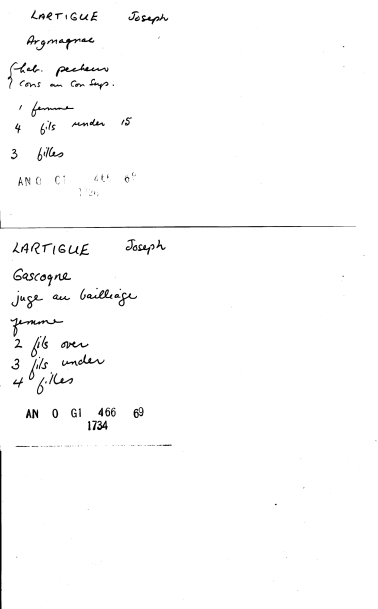 LARTIGUE Joseph
Argmagnac
hab. pecheur
Cons au Con Sup.
1 femme
4 fils under 15
3 filles
AN O G1 466 69
LARTIGUE Joseph
Gascogne
juge au bailliage
femme
2 fils over
3 fils under
4 filles
AN O G1 466 69
1734